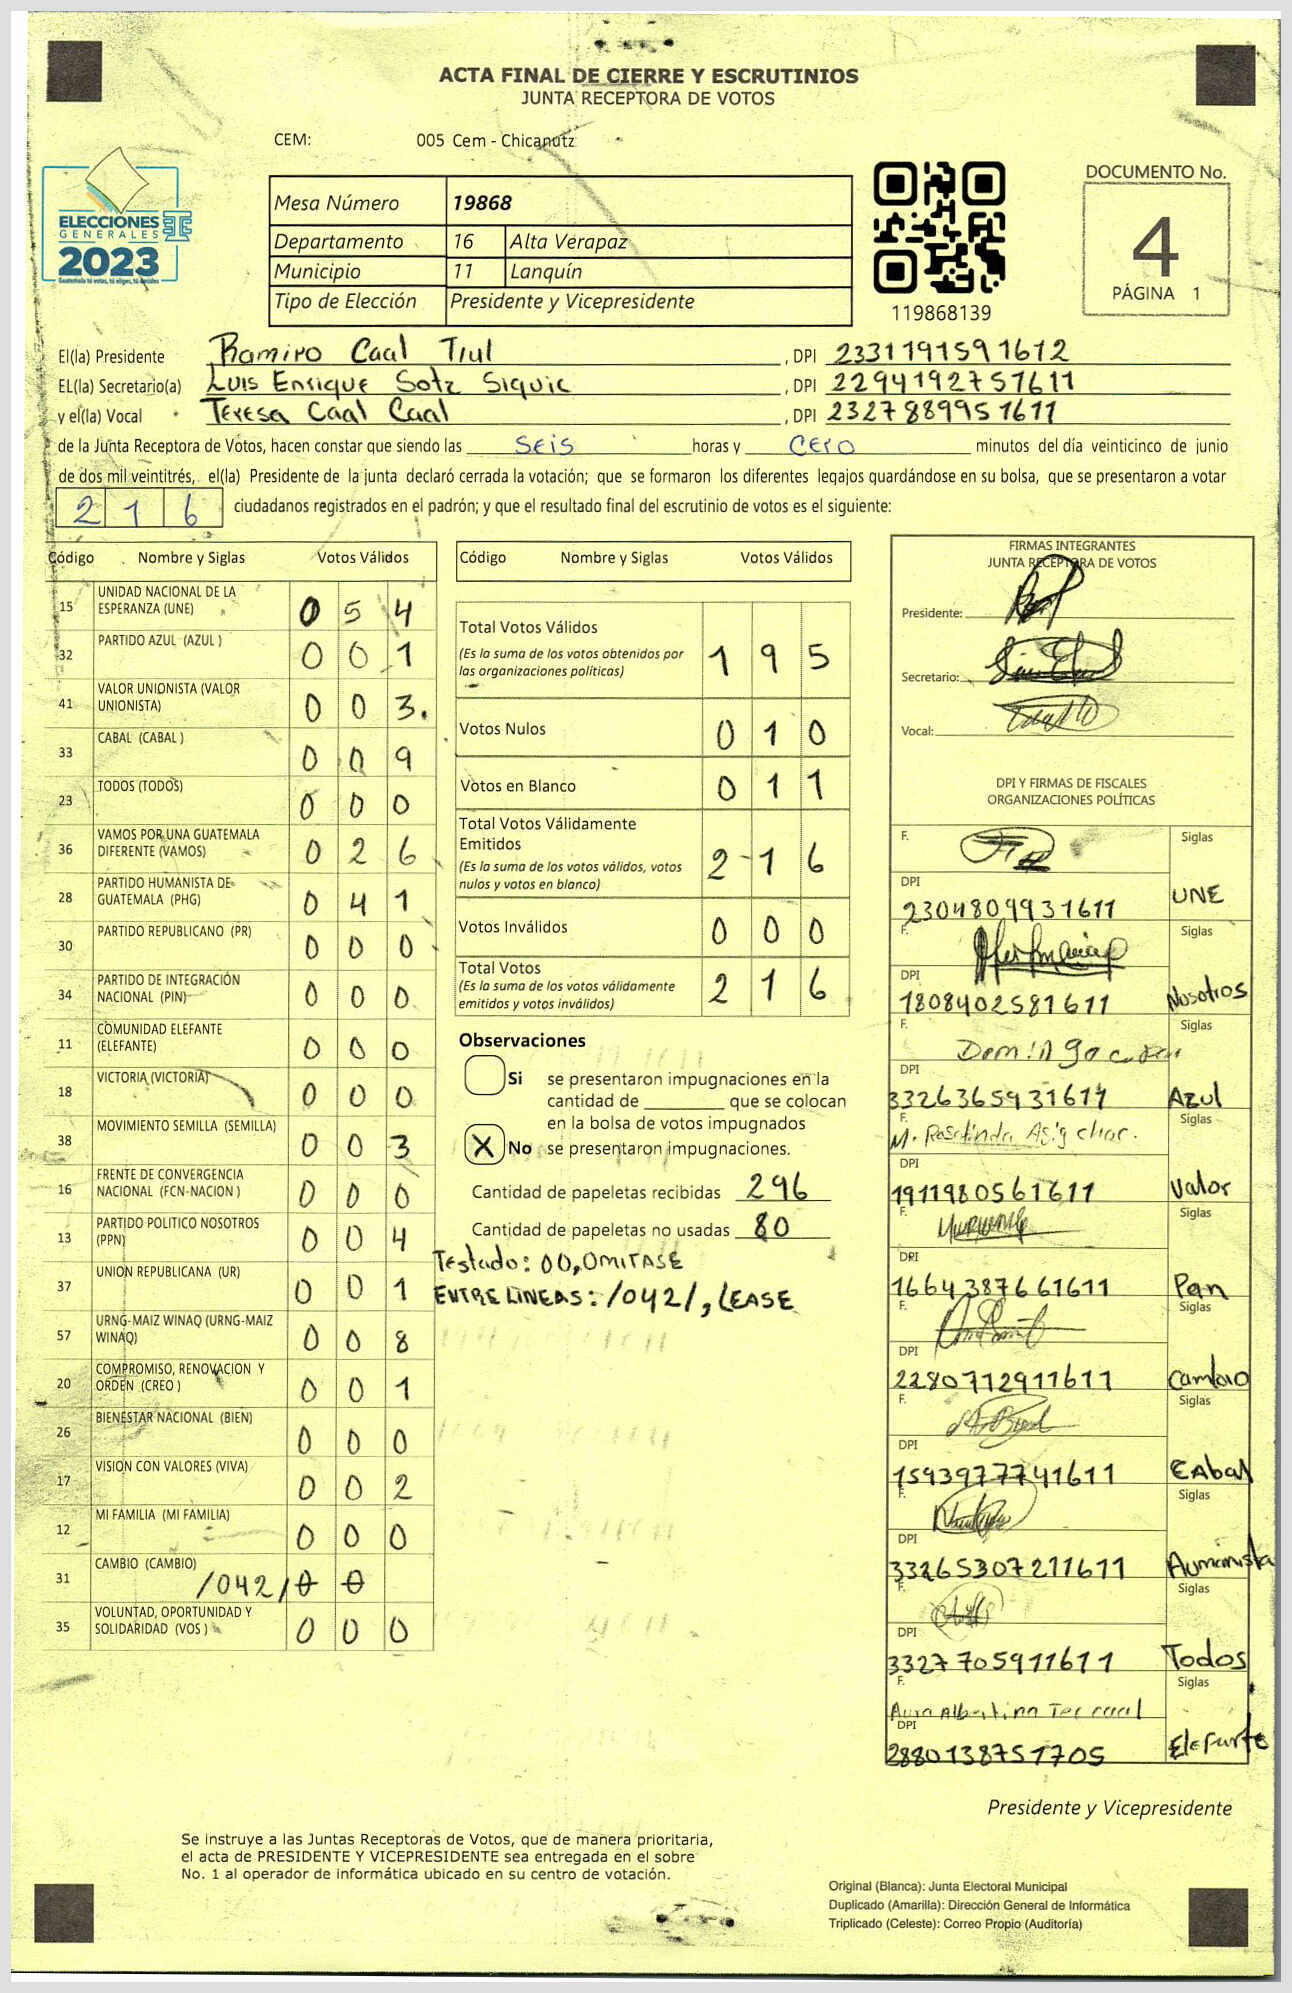 ACTA FINAL DE CIERRE Y ESCRUTINIOS
JUNTA RECEPTORA DE VOTOS
CEM: 005 Cem - Chicanutz
ELECCIONES
GENERALES
2023
Mesa Número 19868
Departamento 16 Alta Verapaz
Municipio 11 Lanquín
Tipo de Elección Presidente y Vicepresidente
119868139
DOCUMENTO No.
4
PÁGINA 1
El(la) Presidente Ramiro Caal Tiul, DPI 2331191591612
EL(la) Secretario(a) Luis Enrique Sotz Siquic, DPI 2294192751611
y el(la) Vocal Teresa Caal Caal, DPI 2327889951611
de la Junta Receptora de Votos, hacen constar que siendo las SEIS horas y CERO minutos del día veinticinco de junio
de dos mil veintitrés, el(la) Presidente de la junta declaró cerrada la votación; que se formaron los diferentes legajos guardándose en su bolsa, que se presentaron a votar
216 ciudadanos registrados en el padrón; y que el resultado final del escrutinio de votos es el siguiente:
Código Nombre y Siglas Votos Válidos
15 UNIDAD NACIONAL DE LA ESPERANZA (UNE) 054
32 PARTIDO AZUL (AZUL ) 001
41 VALOR UNIONISTA (VALOR UNIONISTA) 003.
33 CABAL (CABAL ) 009
23 TODOS (TODOS) 000
36 VAMOS POR UNA GUATEMALA DIFERENTE (VAMOS) 026
28 PARTIDO HUMANISTA DE GUATEMALA (PHG) 041
30 PARTIDO REPUBLICANO (PR) 000
34 PARTIDO DE INTEGRACIÓN NACIONAL (PIN) 000
11 COMUNIDAD ELEFANTE (ELEFANTE) 000
18 VICTORIA (VICTORIA) 000
38 MOVIMIENTO SEMILLA (SEMILLA) 003
16 FRENTE DE CONVERGENCIA NACIONAL (FCN-NACION ) 000
13 PARTIDO POLITICO NOSOTROS (PPN) 004
37 UNION REPUBLICANA (UR) 001
57 URNG-MAIZ WINAQ (URNG-MAIZ WINAQ) 008
20 COMPROMISO, RENOVACION Y ORDEN (CREO ) 001
26 BIENESTAR NACIONAL (BIEN) 000
17 VISION CON VALORES (VIVA) 002
12 MI FAMILIA (MI FAMILIA) 000
31 CAMBIO (CAMBIO) /042/ 0 0
35 VOLUNTAD, OPORTUNIDAD Y SOLIDARIDAD (VOS ) 000
Código Nombre y Siglas Votos Válidos
Total Votos Válidos 195
(Es la suma de los votos obtenidos por
las organizaciones políticas)
Votos Nulos 010
Votos en Blanco 011
Total Votos Válidamente
Emitidos 216
(Es la suma de los votos válidos, votos
nulos y votos en blanco)
Votos Inválidos 000
Total Votos 216
(Es la suma de los votos válidamente
emitidos y votos inválidos)
Observaciones
Si se presentaron impugnaciones en la
cantidad de ________ que se colocan
en la bolsa de votos impugnados
X No se presentaron impugnaciones.
Cantidad de papeletas recibidas 296
Cantidad de papeletas no usadas 80
Testado: 00, OMITASE
ENTRE LINEAS: /042/, LEASE
FIRMAS INTEGRANTES
JUNTA RECEPTORA DE VOTOS
Presidente:
Secretario:
Vocal:
DPI Y FIRMAS DE FISCALES
ORGANIZACIONES POLÍTICAS
F. Siglas
DPI 2304809931611 UNE
F. Siglas
DPI 1808402581611 Nosotros
F. Domingo Siglas
DPI 3326365931611 Azul
F. M. Rosalinda Asig choc. Siglas
DPI 1911980561611 Valor
F. Siglas
DPI 1664387661611 Pan
F. Siglas
DPI 2280712911611 Cambio
F. Siglas
DPI 1593977741611 Cabal
F. Siglas
DPI 33265307211611
F. Siglas
DPI 3327705911611 Todos
F. Siglas
DPI 2880138751705 Elefante
Presidente y Vicepresidente
Se instruye a las Juntas Receptoras de Votos, que de manera prioritaria,
el acta de PRESIDENTE Y VICEPRESIDENTE sea entregada en el sobre
No. 1 al operador de informática ubicado en su centro de votación.
Original (Blanca): Junta Electoral Municipal
Duplicado (Amarilla): Dirección General de Informática
Triplicado (Celeste): Correo Propio (Auditoría)